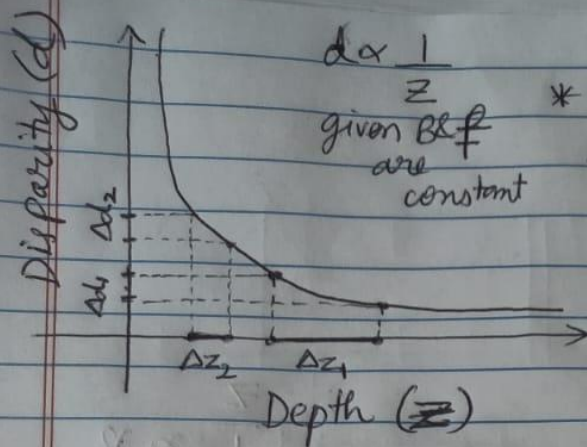 Disparity (d)
d ∝ 1
Z
given B & f
are
constant
*
Δd₂
Δd₁
ΔZ₂
ΔZ₁
Depth (Z)